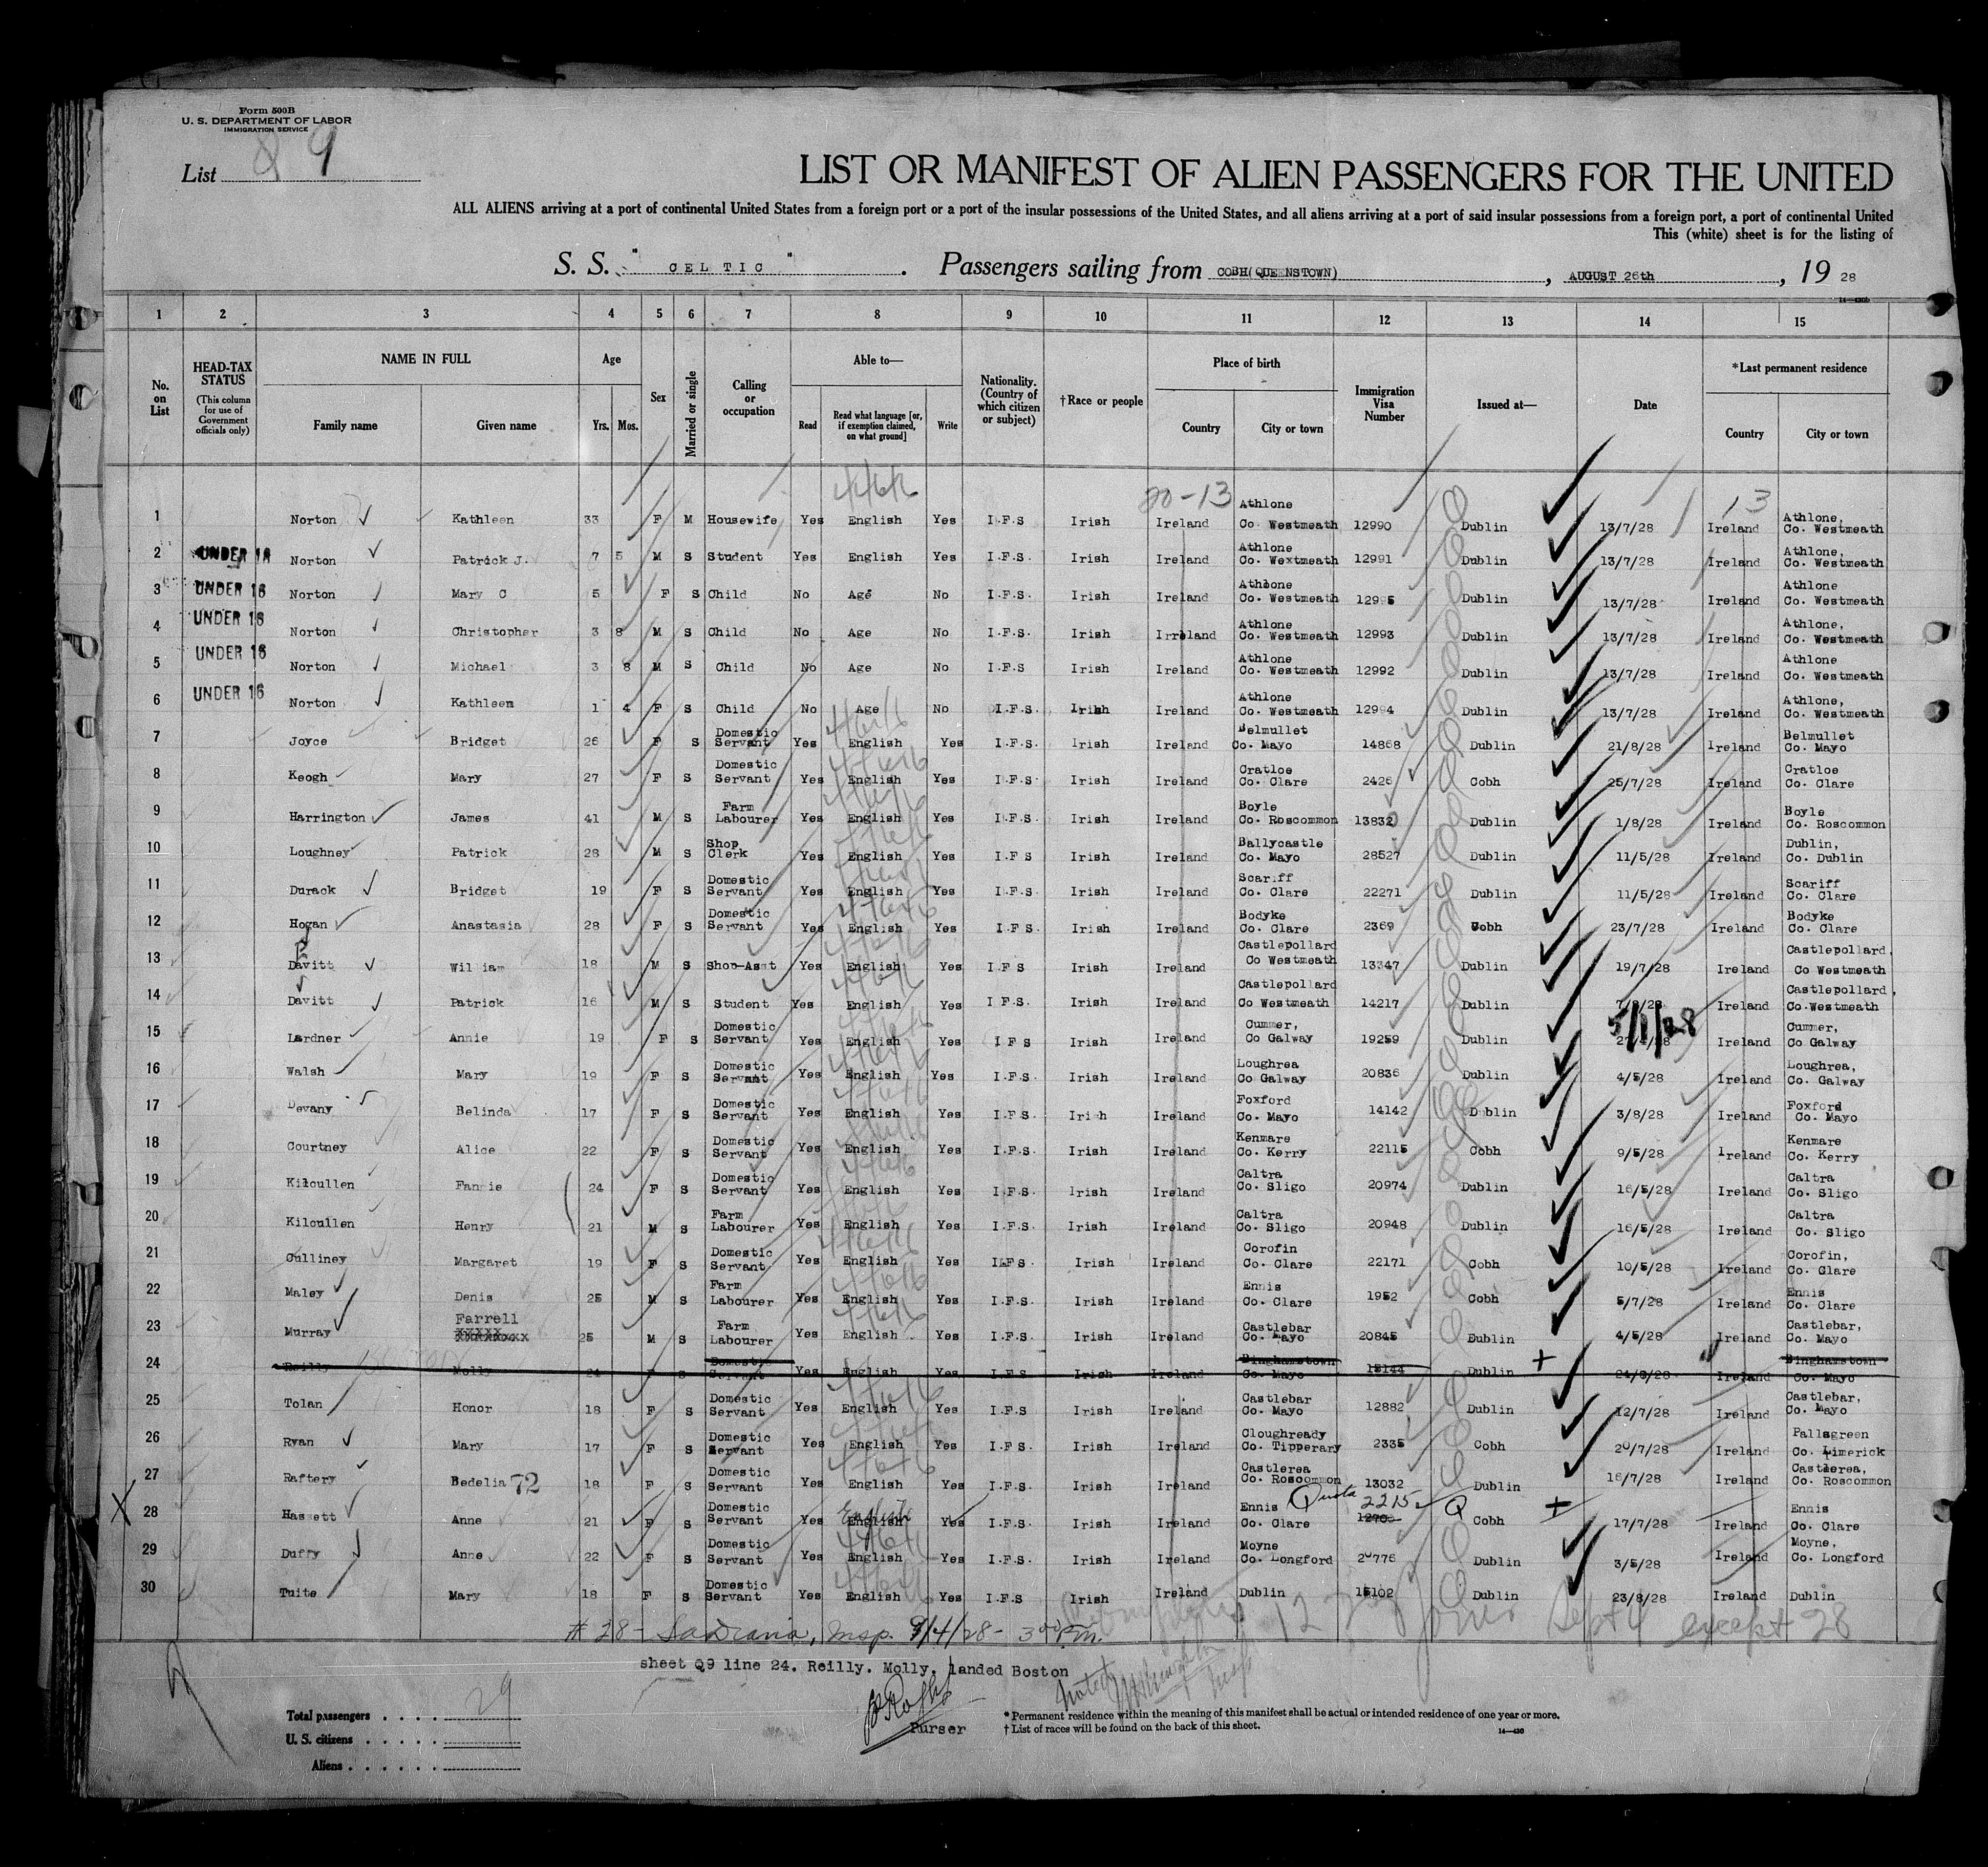 Form 500B
U. S. DEPARTMENT OF LABOR
IMMIGRATION SERVICE
List 8 9
LIST OR MANIFEST OF ALIEN PASSENGERS FOR THE UNITED
ALL ALIENS arriving at a port of continental United States from a foreign port or a port of the insular possessions of the United States, and all aliens arriving at a port of said insular possessions from a foreign port, a port of continental United
This (white) sheet is for the listing of
S. S. " CELTIC " . Passengers sailing from COBH(QUEENSTOWN) , AUGUST 26th , 19 28
1 2 3 4 5 6 7 8 9 10 11 12 13 14 15
No. on List HEAD-TAX STATUS (This column for use of Government officials only) NAME IN FULL Family name Given name Age Yrs. Mos. Sex Married or single Calling or occupation Able to— Read Read what language [or, if exemption claimed, on what ground] Write Nationality. (Country of which citizen or subject) †Race or people Place of birth Country City or town Immigration Visa Number Issued at— Date *Last permanent residence Country City or town
1 Norton Kathleen 33 F M Housewife Yes English Yes I.F.S Irish Ireland Athlone Co Westmeath 12990 Dublin 13/7/28 Ireland Athlone, Co. Westmeath
2 UNDER 16 Norton Patrick J. 7 5 M S Student Yes English Yes I.F.S. Irish Ireland Athlone Co. Wextmeath 12991 Dublin 13/7/28 Ireland Athlone, Co. Westmeath
3 UNDER 16 Norton Mary C 5 F S Child No Age No I.F.S. Irish Ireland Athlone Co. Westmeath 12995 Dublin 13/7/28 Ireland Athlone Co. Westmeath
4 UNDER 16 Norton Christopher 3 8 M S Child No Age No I.F.S. Irish Irreland Athlone Co. Westmeath 12993 Dublin 13/7/28 Ireland Athlone, Co. Westmeath
5 UNDER 16 Norton Michael 3 8 M S Child No Age No I.F.S Irish Ireland Athlone Co. Westmeath 12992 Dublin 13/7/28 Ireland Athlone Co. Westmeath
6 UNDER 16 Norton Kathleen 1 4 F S Child No Age No I.F.S. Irish Ireland Athlone Co. Westmeath 12994 Dublin 13/7/28 Ireland Athlone, Co. Westmeath
7 Joyce Bridget 26 F S Domestic Servant Yes English Yes I.F.S. Irish Ireland Belmullet Co. Mayo 14868 Dublin 21/8/28 Ireland Belmullet Co. Mayo
8 Keogh Mary 27 F S Domestic Servant Yes English Yes I.F.S. Irish Ireland Cratloe Co. Clare 2426 Cobh 25/7/28 Ireland Cratloe Co. Clare
9 Harrington James 41 M S Farm Labourer Yes English Yes I.F.S. Irish Ireland Boyle Co. Roscommon 13832 Dublin 1/8/28 Ireland Boyle Co. Roscommon
10 Loughney Patrick 28 M S Shop Clerk Yes English Yes I.F S Irish Ireland Ballycastle Co. Mayo 28527 Dublin 11/5/28 Ireland Dublin, Co. Dublin
11 Durack Bridget 19 F S Domestic Servant Yes English Yes I.F.S. Irish Ireland Scariff Co. Clare 22271 Dublin 11/5/28 Ireland Scariff Co. Clare
12 Hogan Anastasia 28 F S Domestic Servant Yes English Yes I.F S. Irish Ireland Bodyke Co. Clare 2369 Cobh 23/7/28 Ireland Bodyke Co. Clare
13 Davitt William 18 M S Shop-Asst Yes English Yes I.F S Irish Ireland Castlepollard Co Westmeath 13347 Dublin 19/7/28 Ireland Castlepollard, Co Westmeath
14 Davitt Patrick 16 M S Student Yes English Yes I F.S. Irish Ireland Castlepollard Co Westmeath 14217 Dublin 7/8/28 Ireland Castlepollard, Co.Westmeath
15 Lardner Annie 19 F S Domestic Servant Yes English Yes I F S Irish Ireland Cummer, Co Galway 19259 Dublin Ireland Cummer, Co Galway
16 Walsh Mary 19 F S Domestic Servant Yes English Yes I.F.S. Irish Ireland Loughrea Co Galway 20836 Dublin 4/5/28 Ireland Loughrea, Co. Galway
17 Devany Belinda 17 F S Domestic Servant Yes English Yes I.F.S. Irish Ireland Foxford Co. Mayo 14142 Dublin 3/8/28 Ireland Foxford Co. Mayo
18 Courtney Alice 22 F S Domestic Servant Yes English Yes I.F.S. Irish Ireland Kenmare Co. Kerry 22115 Cobh 9/5/28 Ireland Kenmare Co. Kerry
19 Kilcullen Fannie 24 F S Domestic Servant Yes English Yes I.F.S. Irish Ireland Caltra Co. Sligo 20974 Dublin 16/5/28 Ireland Caltra Co. Sligo
20 Kilcullen Henry 21 M S Farm Labourer Yes English Yes I.F.S. Irish Ireland Caltra Co. Sligo 20948 Dublin 16/5/28 Ireland Caltra Co. Sligo
21 Culliney Margaret 19 F S Domestic Servant Yes English Yes I.F S Irish Ireland Corofin Co. Clare 22171 Cobh 10/5/28 Ireland Corofin, Co. Clare
22 Maley Denis 25 M S Farm Labourer Yes English Yes I.F.S. Irish Ireland Ennis Co. Clare 1952 Cobh 5/7/28 Ireland Ennis Co. Clare
23 Murray Farrell 25 M S Farm Labourer Yes English Yes I.F.S. Irish Ireland Castlebar Co. Mayo 20845 Dublin 4/5/28 Ireland Castlebar, Co. Mayo
24 Reilly Molly 24 F S Domestic Servant Yes English Yes I.F.S Irish Ireland Binghamstown Co. Mayo 15144 Dublin 24/8/28 Ireland Binghamstown Co. Mayo
25 Tolan Honor 18 F S Domestic Servant Yes English Yes I.F.S Irish Ireland Castlebar Co. Mayo 12882 Dublin 12/7/28 Ireland Castlebar, Co. Mayo
26 Ryan Mary 17 F S Domestic Servant Yes English Yes I.F S. Irish Ireland Cloughready Co. Tipperary 2335 Cobh 20/7/28 Ireland Pallagreen Co. Limerick
27 Raftery Bedelia 72 18 F S Domestic Servant Yes English Yes I.F.S. Irish Ireland Castlerea Co. Roscommon 13032 Dublin 16/7/28 Ireland Castlerea, Co. Roscommon
X 28 Hassett Anne 21 F S Domestic Servant Yes English English Yes I.F.S. Irish Ireland Ennis Co. Clare Quota 2215 12700 Q Cobh 17/7/28 Ireland Ennis Co. Clare
29 Duffy Anne 22 F S Domestic Servant Yes English Yes I.F.S. Irish Ireland Moyne Co. Longford 20776 Dublin 3/5/28 Ireland Moyne, Co. Longford
30 Tuite Mary 18 F S Domestic Servant Yes English Yes I.F.S Irish Ireland Dublin 15102 Dublin 23/8/28 Ireland Dublin
# 28 - Insp. 9/4/28 - 3 00 P.m. Sept 4 except 28
sheet Q9 line 24. Reilly. Molly. landed Boston
noted
Purser
Total passengers . . . . 29
U. S. citizens . . . . .
Aliens . . . . . .
* Permanent residence within the meaning of this manifest shall be actual or intended residence of one year or more.
† List of races will be found on the back of this sheet.
14—430